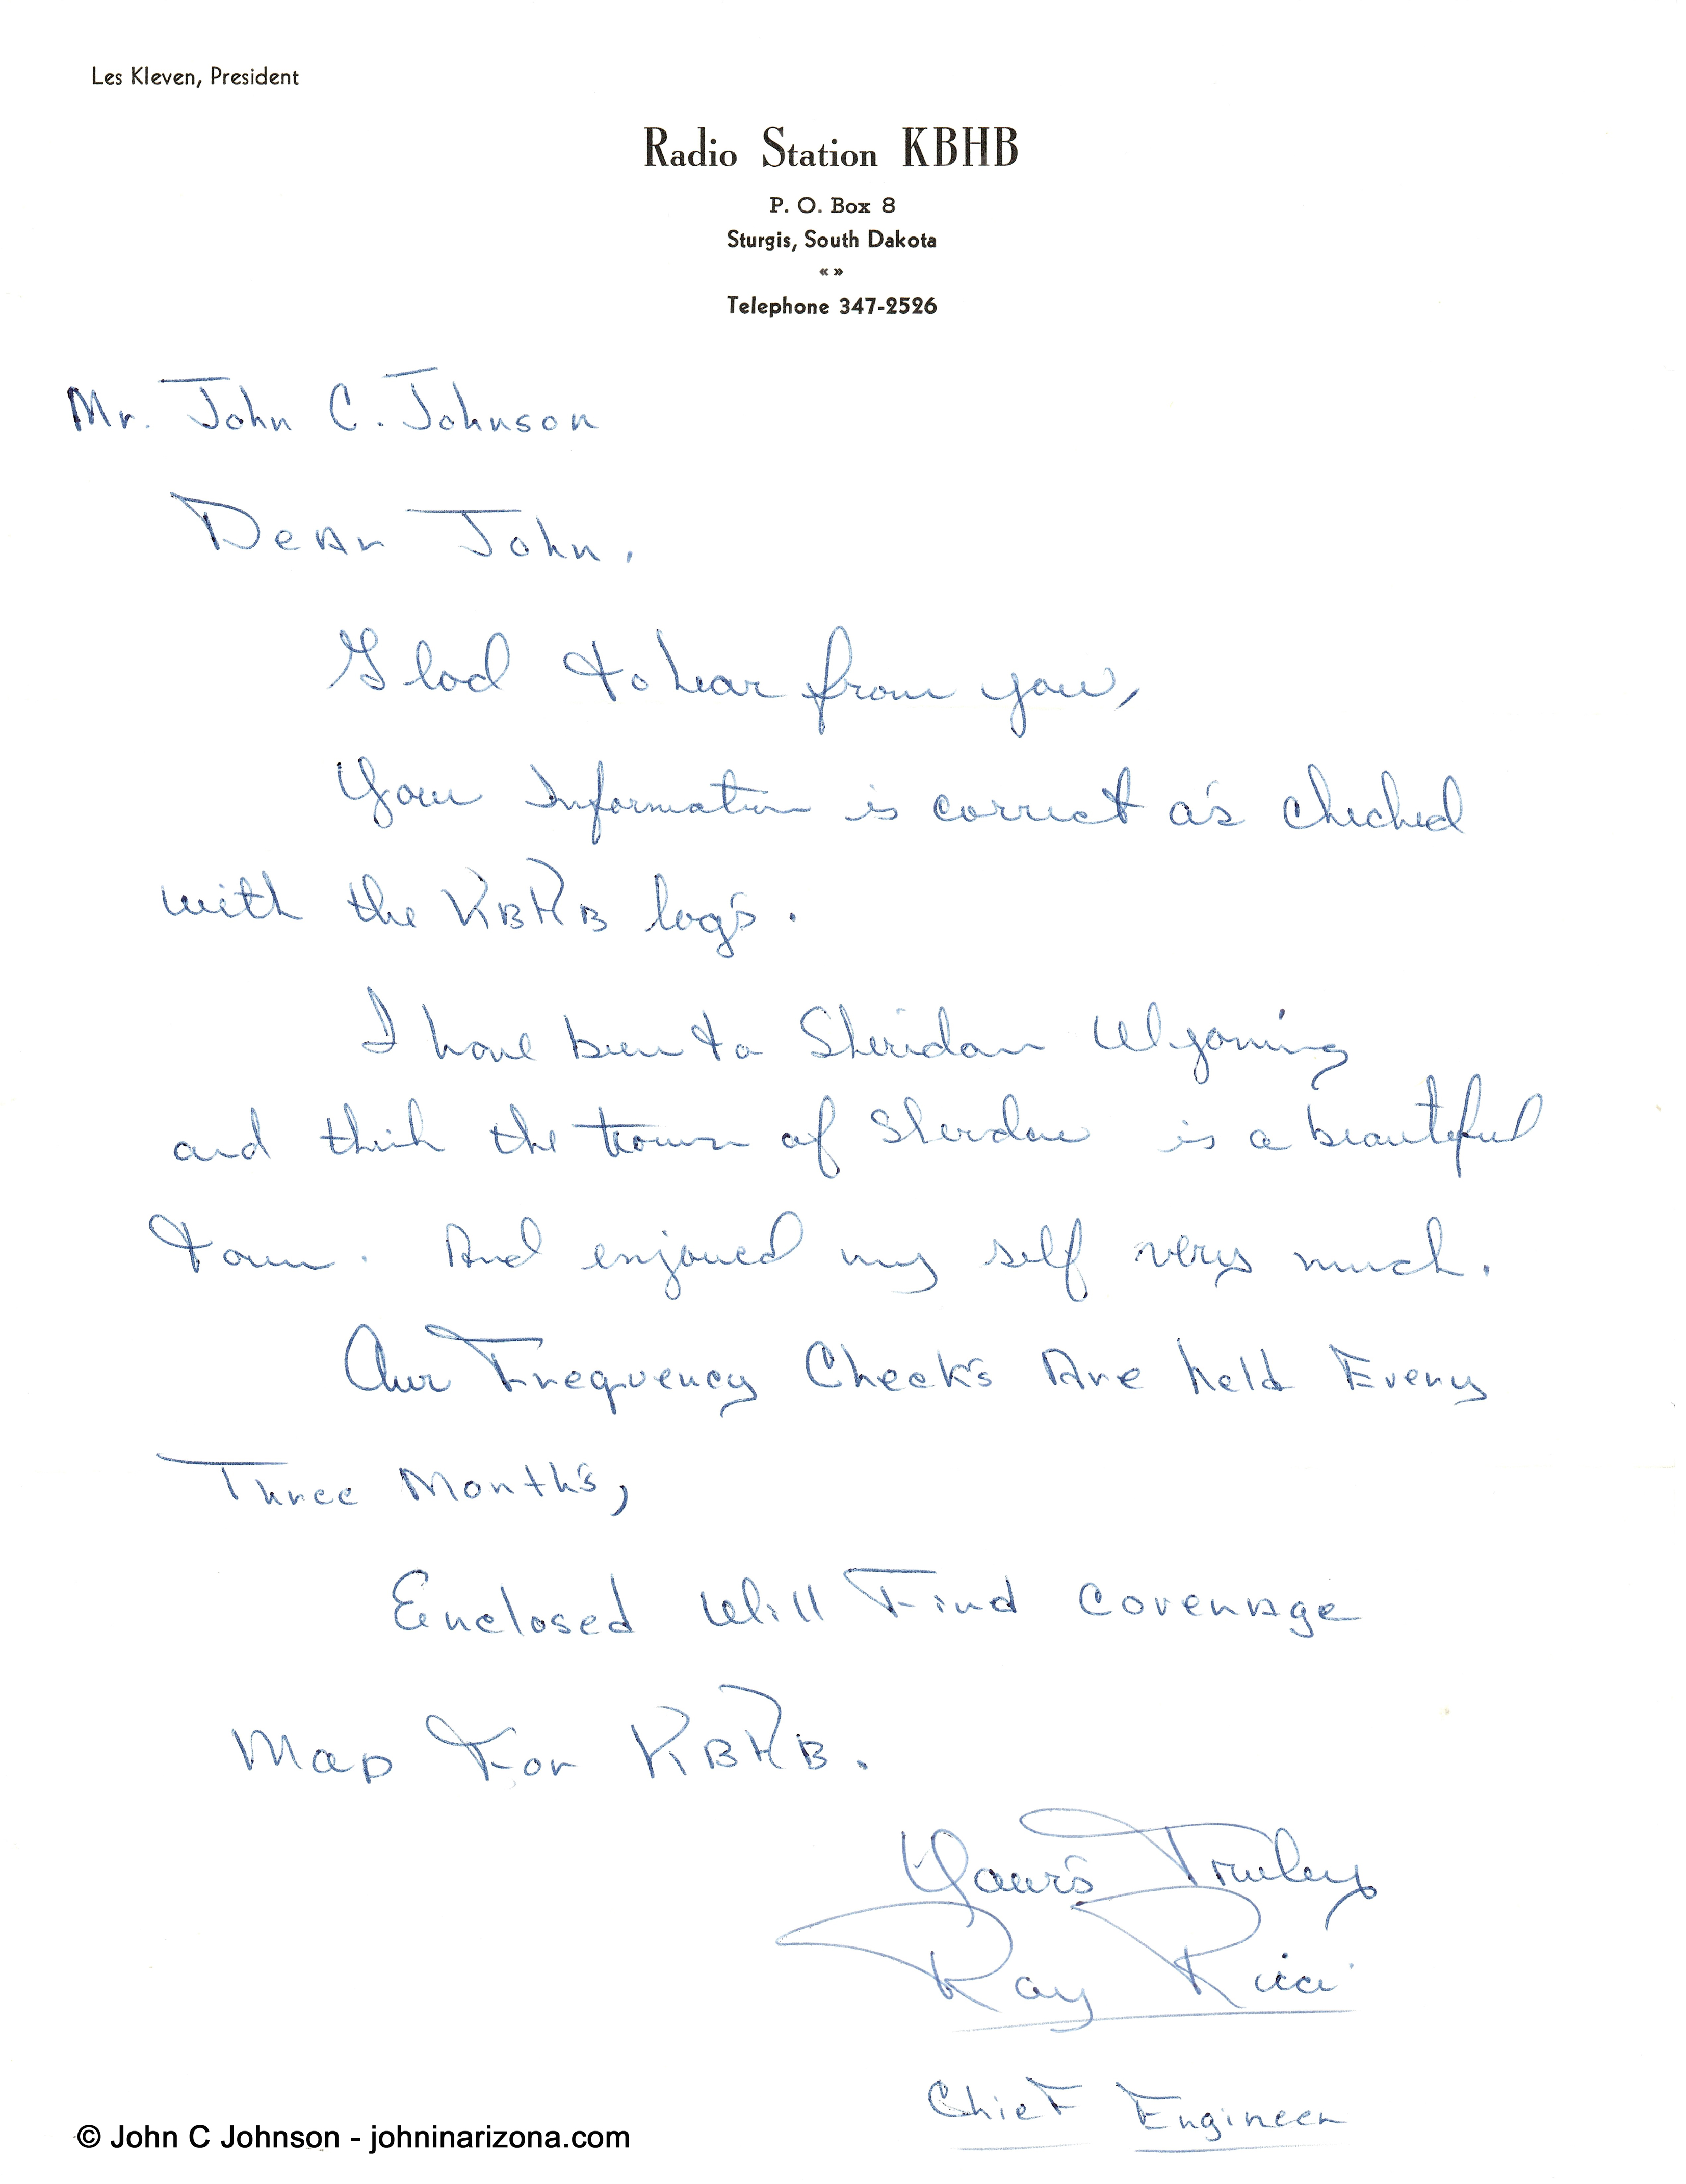 Les Kleven, President
Radio Station KBHB
P. O. Box 8
Sturgis, South Dakota
« »
Telephone 347-2526
Mr. John C. Johnson
Dear John,
Glad to hear from you,
Your Information is correct as checked
with the KBHB log's.
I have been to Sheridan Wyoming
and think the town of Sheridan is a beautiful
town. And enjoyed my self very much.
Our Frequency Check's Are held Every
Three Month's,
Enclosed Will Find Coverage
Map For KBHB.
Your's Truley
Ray Ricci
Chief Engineer
© John C Johnson - johninarizona.com